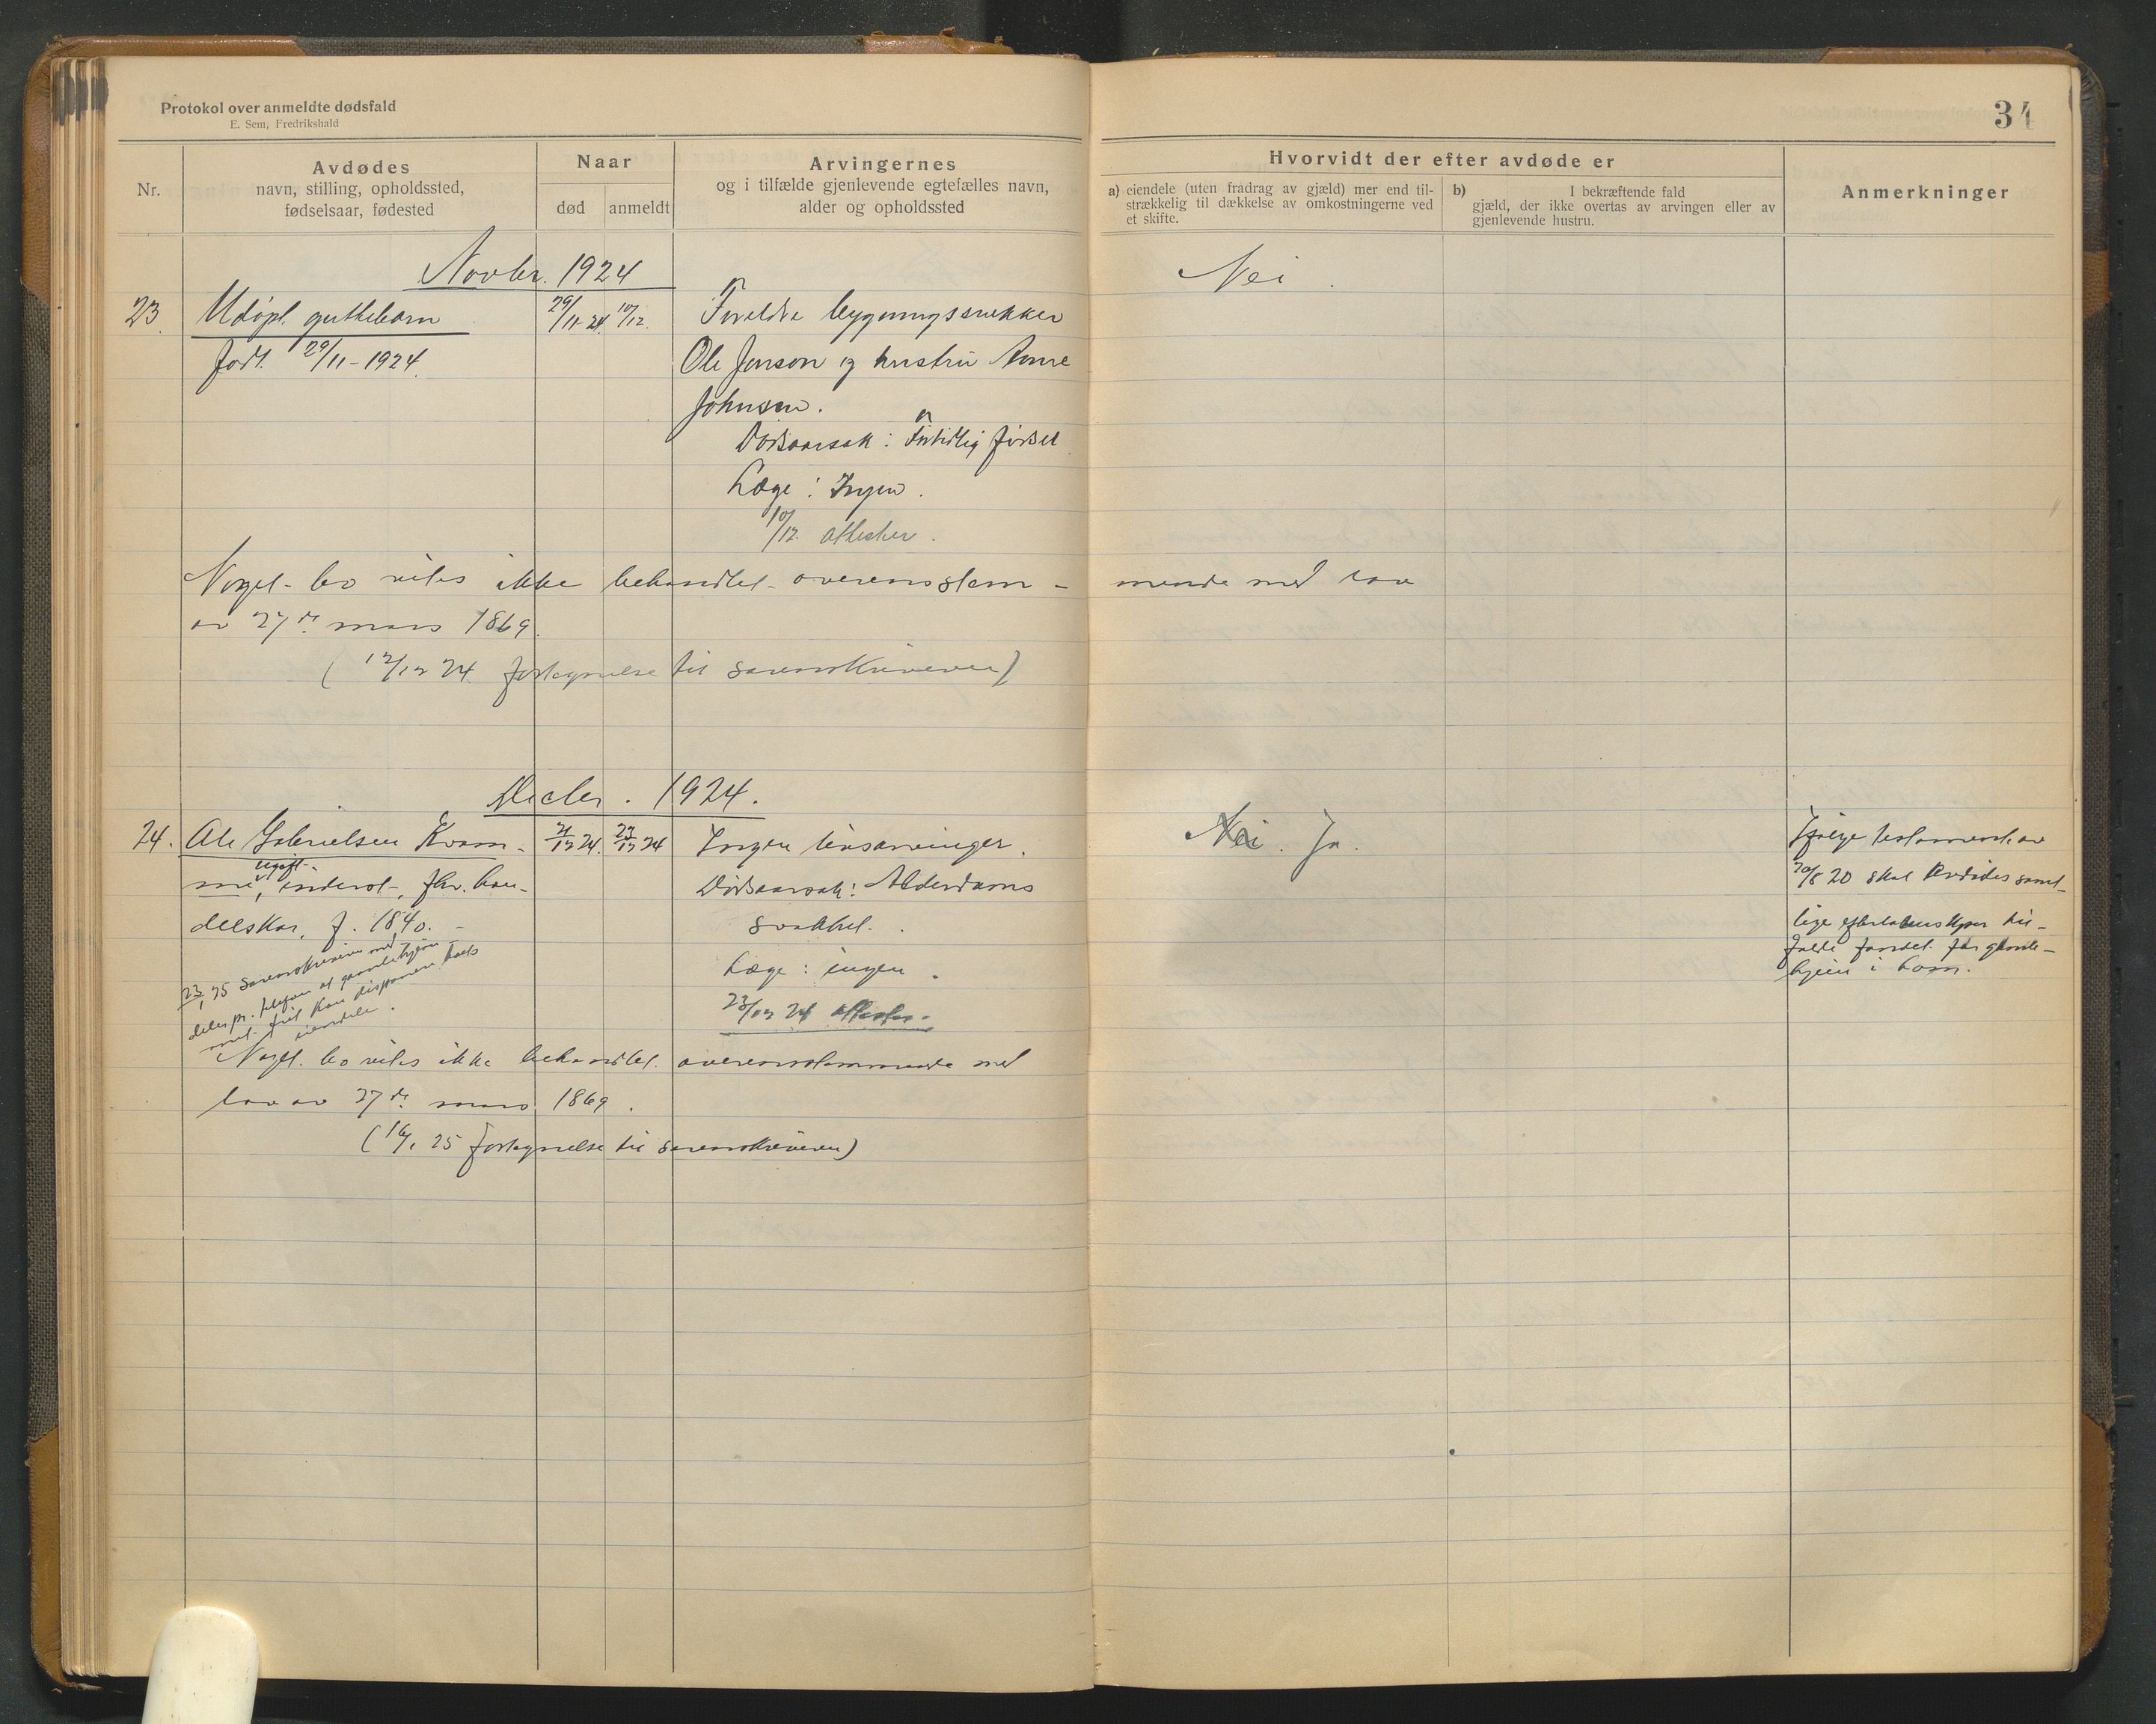 Protokol over anmeldte dødsfald
E. Sem, Fredrikshald
34
Nr.
Avdødes
navn, stilling, opholdssted,
fødselsaar, fødested
Naar
død
anmeldt
Arvingernes
og i tilfælde gjenlevende egtefælles navn,
alder og opholdssted
Hvorvidt der efter avdøde er
a) eiendele (uten fradrag av gjæld) mer end til-
strækkelig til dækkelse av omkostningerne ved
et skifte.
b) I bekræftende fald
gjæld, der ikke overtas av arvingen eller av
gjenlevende hustru.
Anmerkninger
Novbr. 1924
23.
Udøpt guttebarn
født 29/11-1924
29/11-24
10/12.
Foreldre bygningssnekker
Ole Jonson og hustru Anne
Johnsen.
Dødsaarsak: Fortidlig fødsel
Læge: Ingen.
10/12 attester.
Nei.
Noget bo vites ikke behandlet overensstem-mende med lov
av 27de mars 1869.
(12/12 24 fortegnelse til sorenskriveren)
Decbr. 1924.
24.
Ole Gabrielsen Kvam-
me, ugift, inderst, fhv. han-
delskar, f. 1840.
21/12 24.
23/12 24
Ingen livsarvinger.
Dødsaarsak: Alderdoms
svakhet.
Læge: ingen.
23/12 24 attester.
Nei. Ja.
Ifølge testament av
20/8 20 skal
lige efterladenskaper til-
falde fondet for gamle-
hjem i
23/1 25 Sorenskriveren med-
deler pr. telefon at gamlehjem-
met frit kan disponere boets
eiendele.
Noget bo vites ikke behandlet overensstemmende med
lov av 27de mars 1869.
(16/1 25 fortegnelse til sorenskriveren)